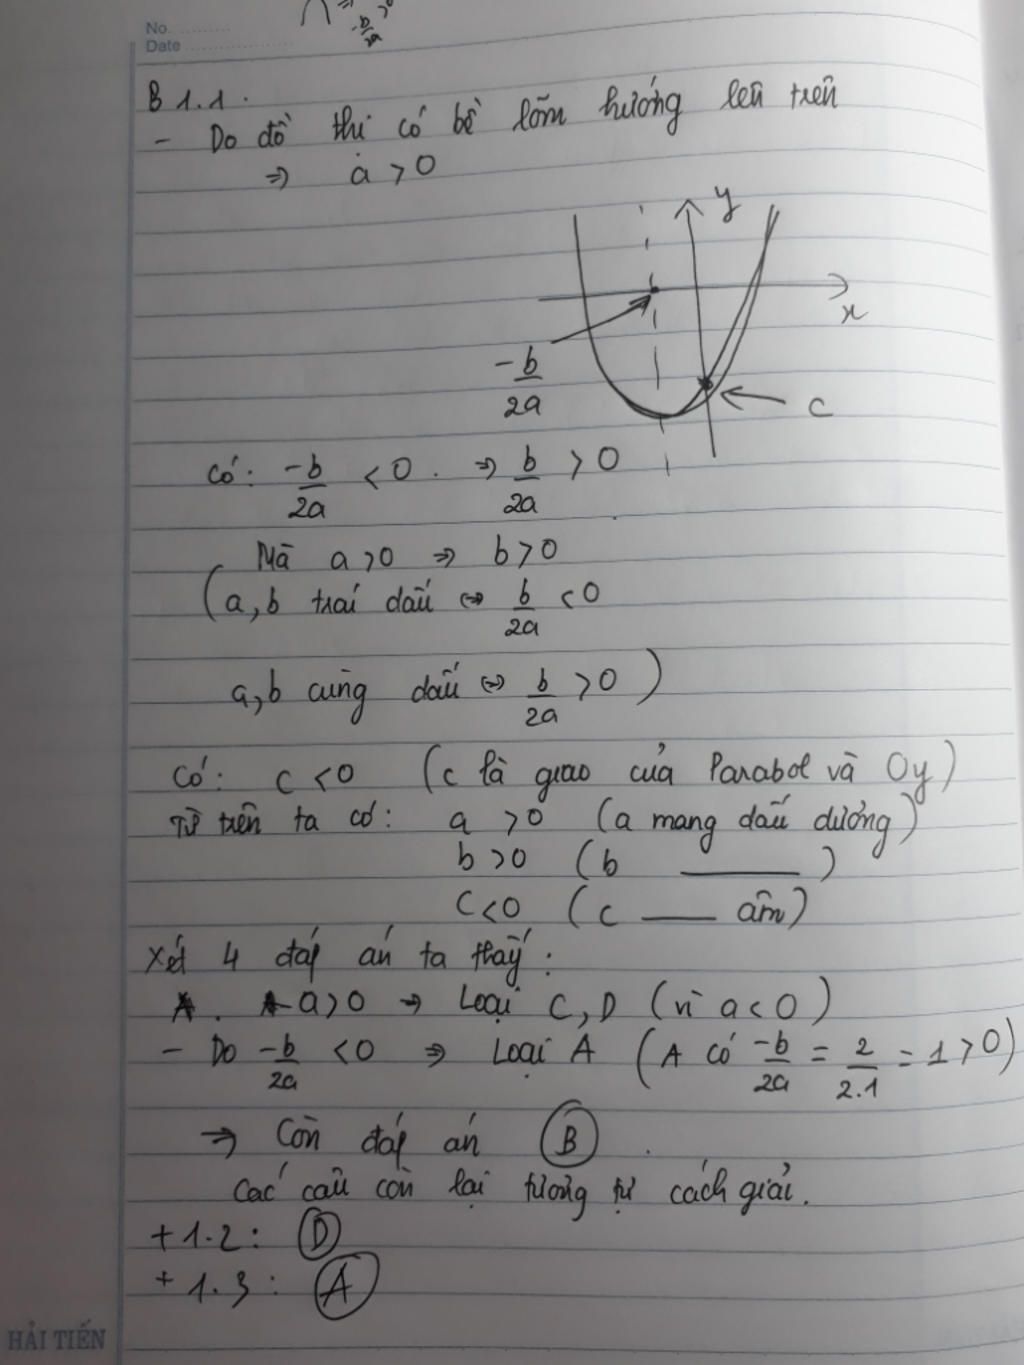 No. ..........
Date ....................
-b/2a
B 1.1.
- Do đồ thị có bề lõm hướng lên trên
=> a > 0
y
x
-b/2a
c
Có: -b/2a < 0. => b/2a > 0
Mà a > 0 => b > 0
(a, b trái dấu <=> b/2a < 0
a, b cùng dấu <=> b/2a > 0)
Có: c < 0 (c là giao của Parabol và Oy)
Từ trên ta có: a > 0 (a mang dấu dương)
b > 0 (b ______)
c < 0 (c ____ âm)
Xét 4 đáp án ta thấy:
a > 0 => Loại C, D (vì a < 0)
- Do -b/2a < 0 => Loại A (A có -b/2a = 2/2.1 = 1 > 0)
=> Còn đáp án B.
Các câu còn lại tương tự cách giải.
+ 1.2: D
+ 1.3: A
HẢI TIẾN